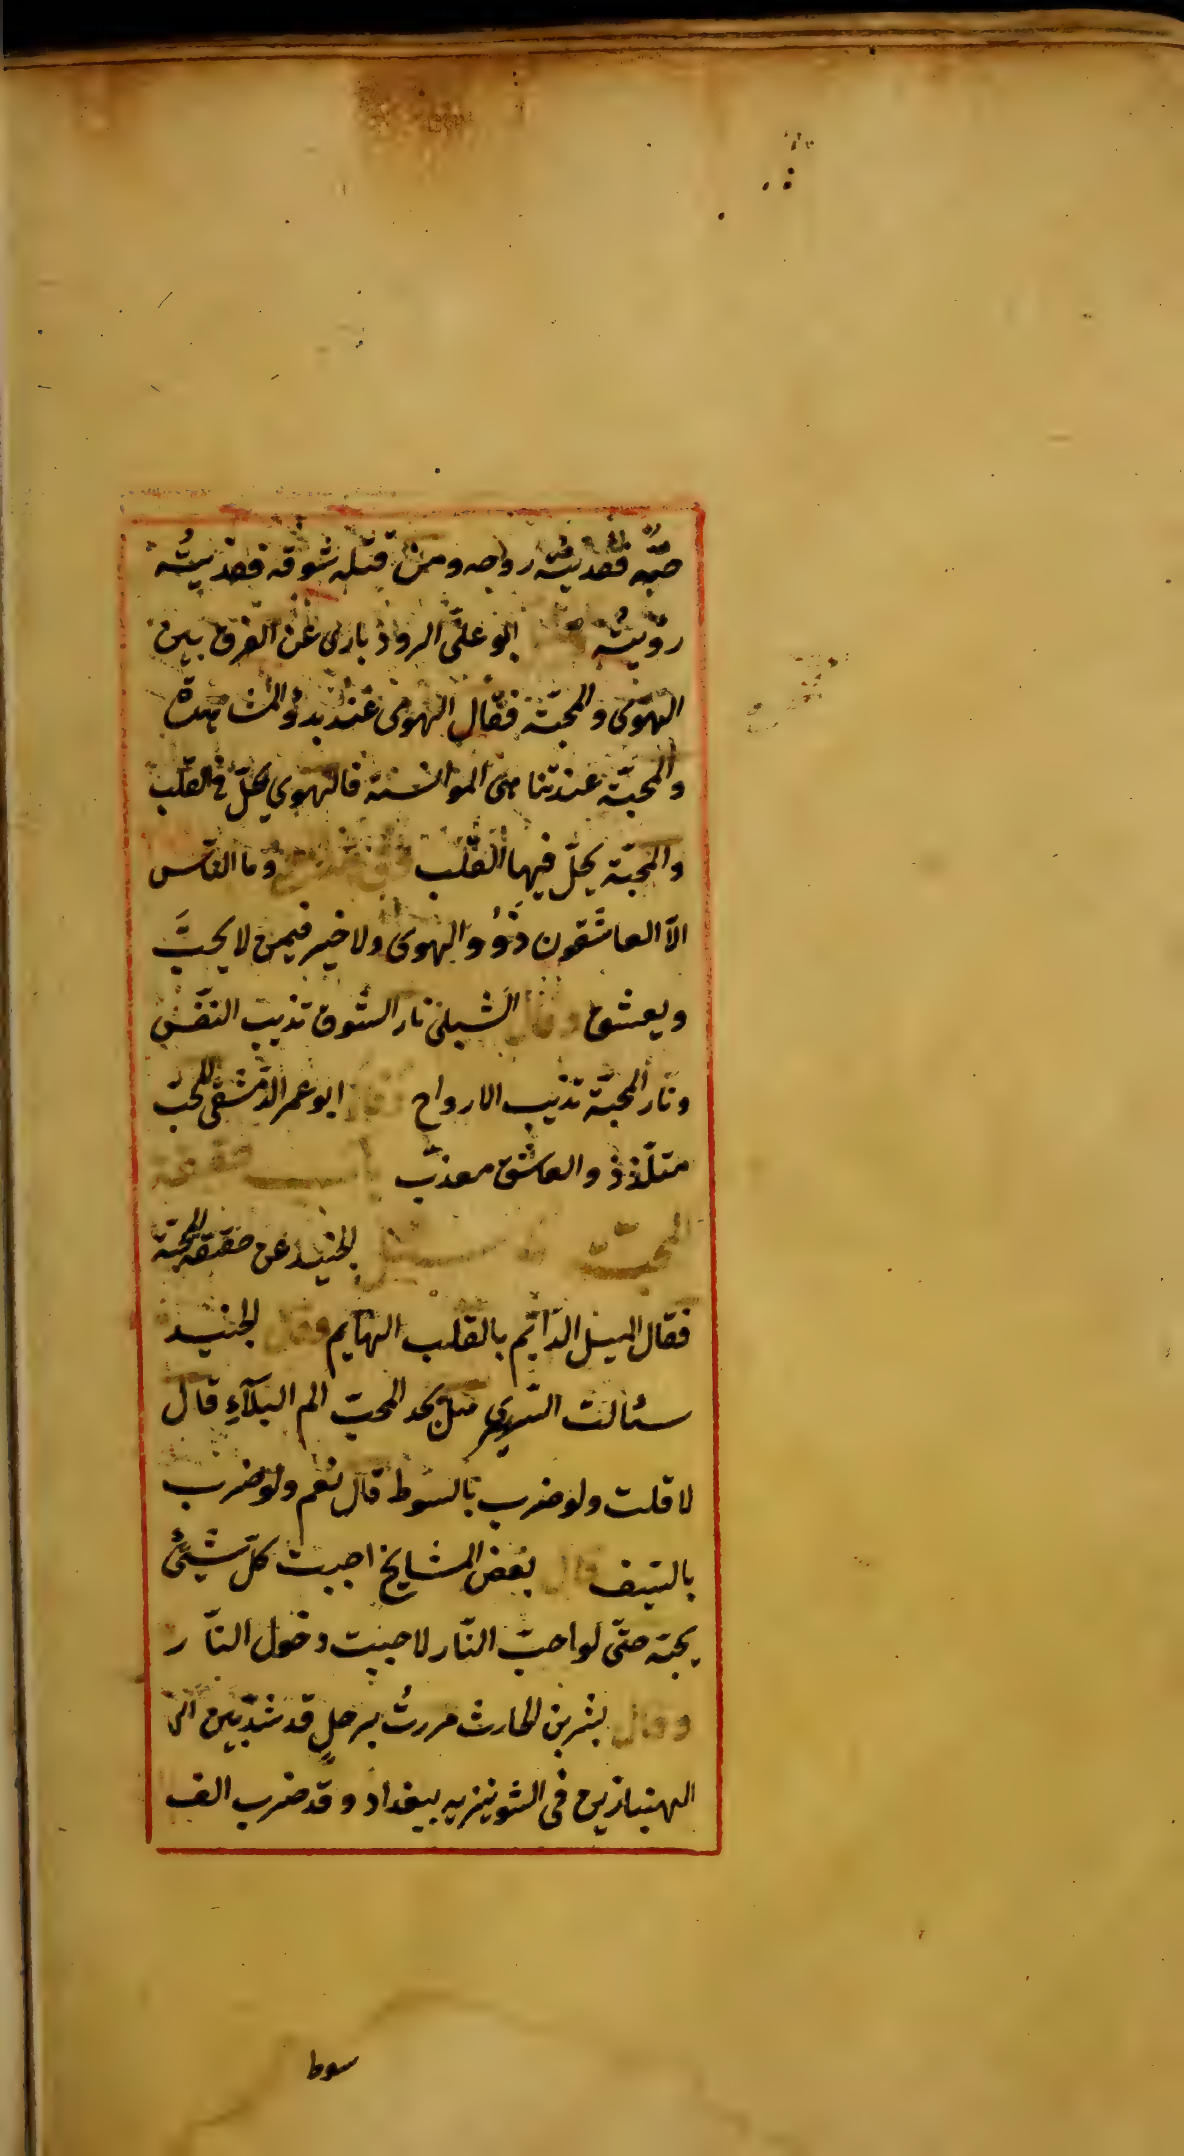 حبّه فديته رواحه ومن قتله شوقه فديته
رؤيته ابو علّى الرود بارى عن الفرق بين
الهوى والمحبّة فقال الهوى عند بدؤ المشاهدة
والمحبّة عند تناهى الموانسته فالهوى يحلّ فى القلب
والمحبّة يحلّ فيها القلب وما النّاس
الاّ العاشقون ذؤو الهوى ولا خير فيمن لا يحبّ
ويعشق وقال الشبلى نار الشّوق تذيب النّفس
ونار المحبّة تذيب الارواح ابو عمر الدّمشقى المحبّ
متلّذذ والعاشق معذّب باب حقيقة
المحبّة سئل الجنيد عن حقيقة المحبّة
فقال الميل الدّائم بالقلب الهايم وقال الجنيد
سئالت السّرى هل يجد المحبّ الم البلآءِ قال
لا قلت ولو ضرب بالسوط قال نعم ولو ضرب
بالسّيف قال بعض المشايخ احببت كلّ شيئ
يحبّه حتّى لو احبّ النّار لاحببت دخول النّار
وقال بشر بن الحارث مررتُ برجلٍ قد شدّ بين
الهنبازين فى الشونيزيه ببغداد وقد ضرب الف
سوط